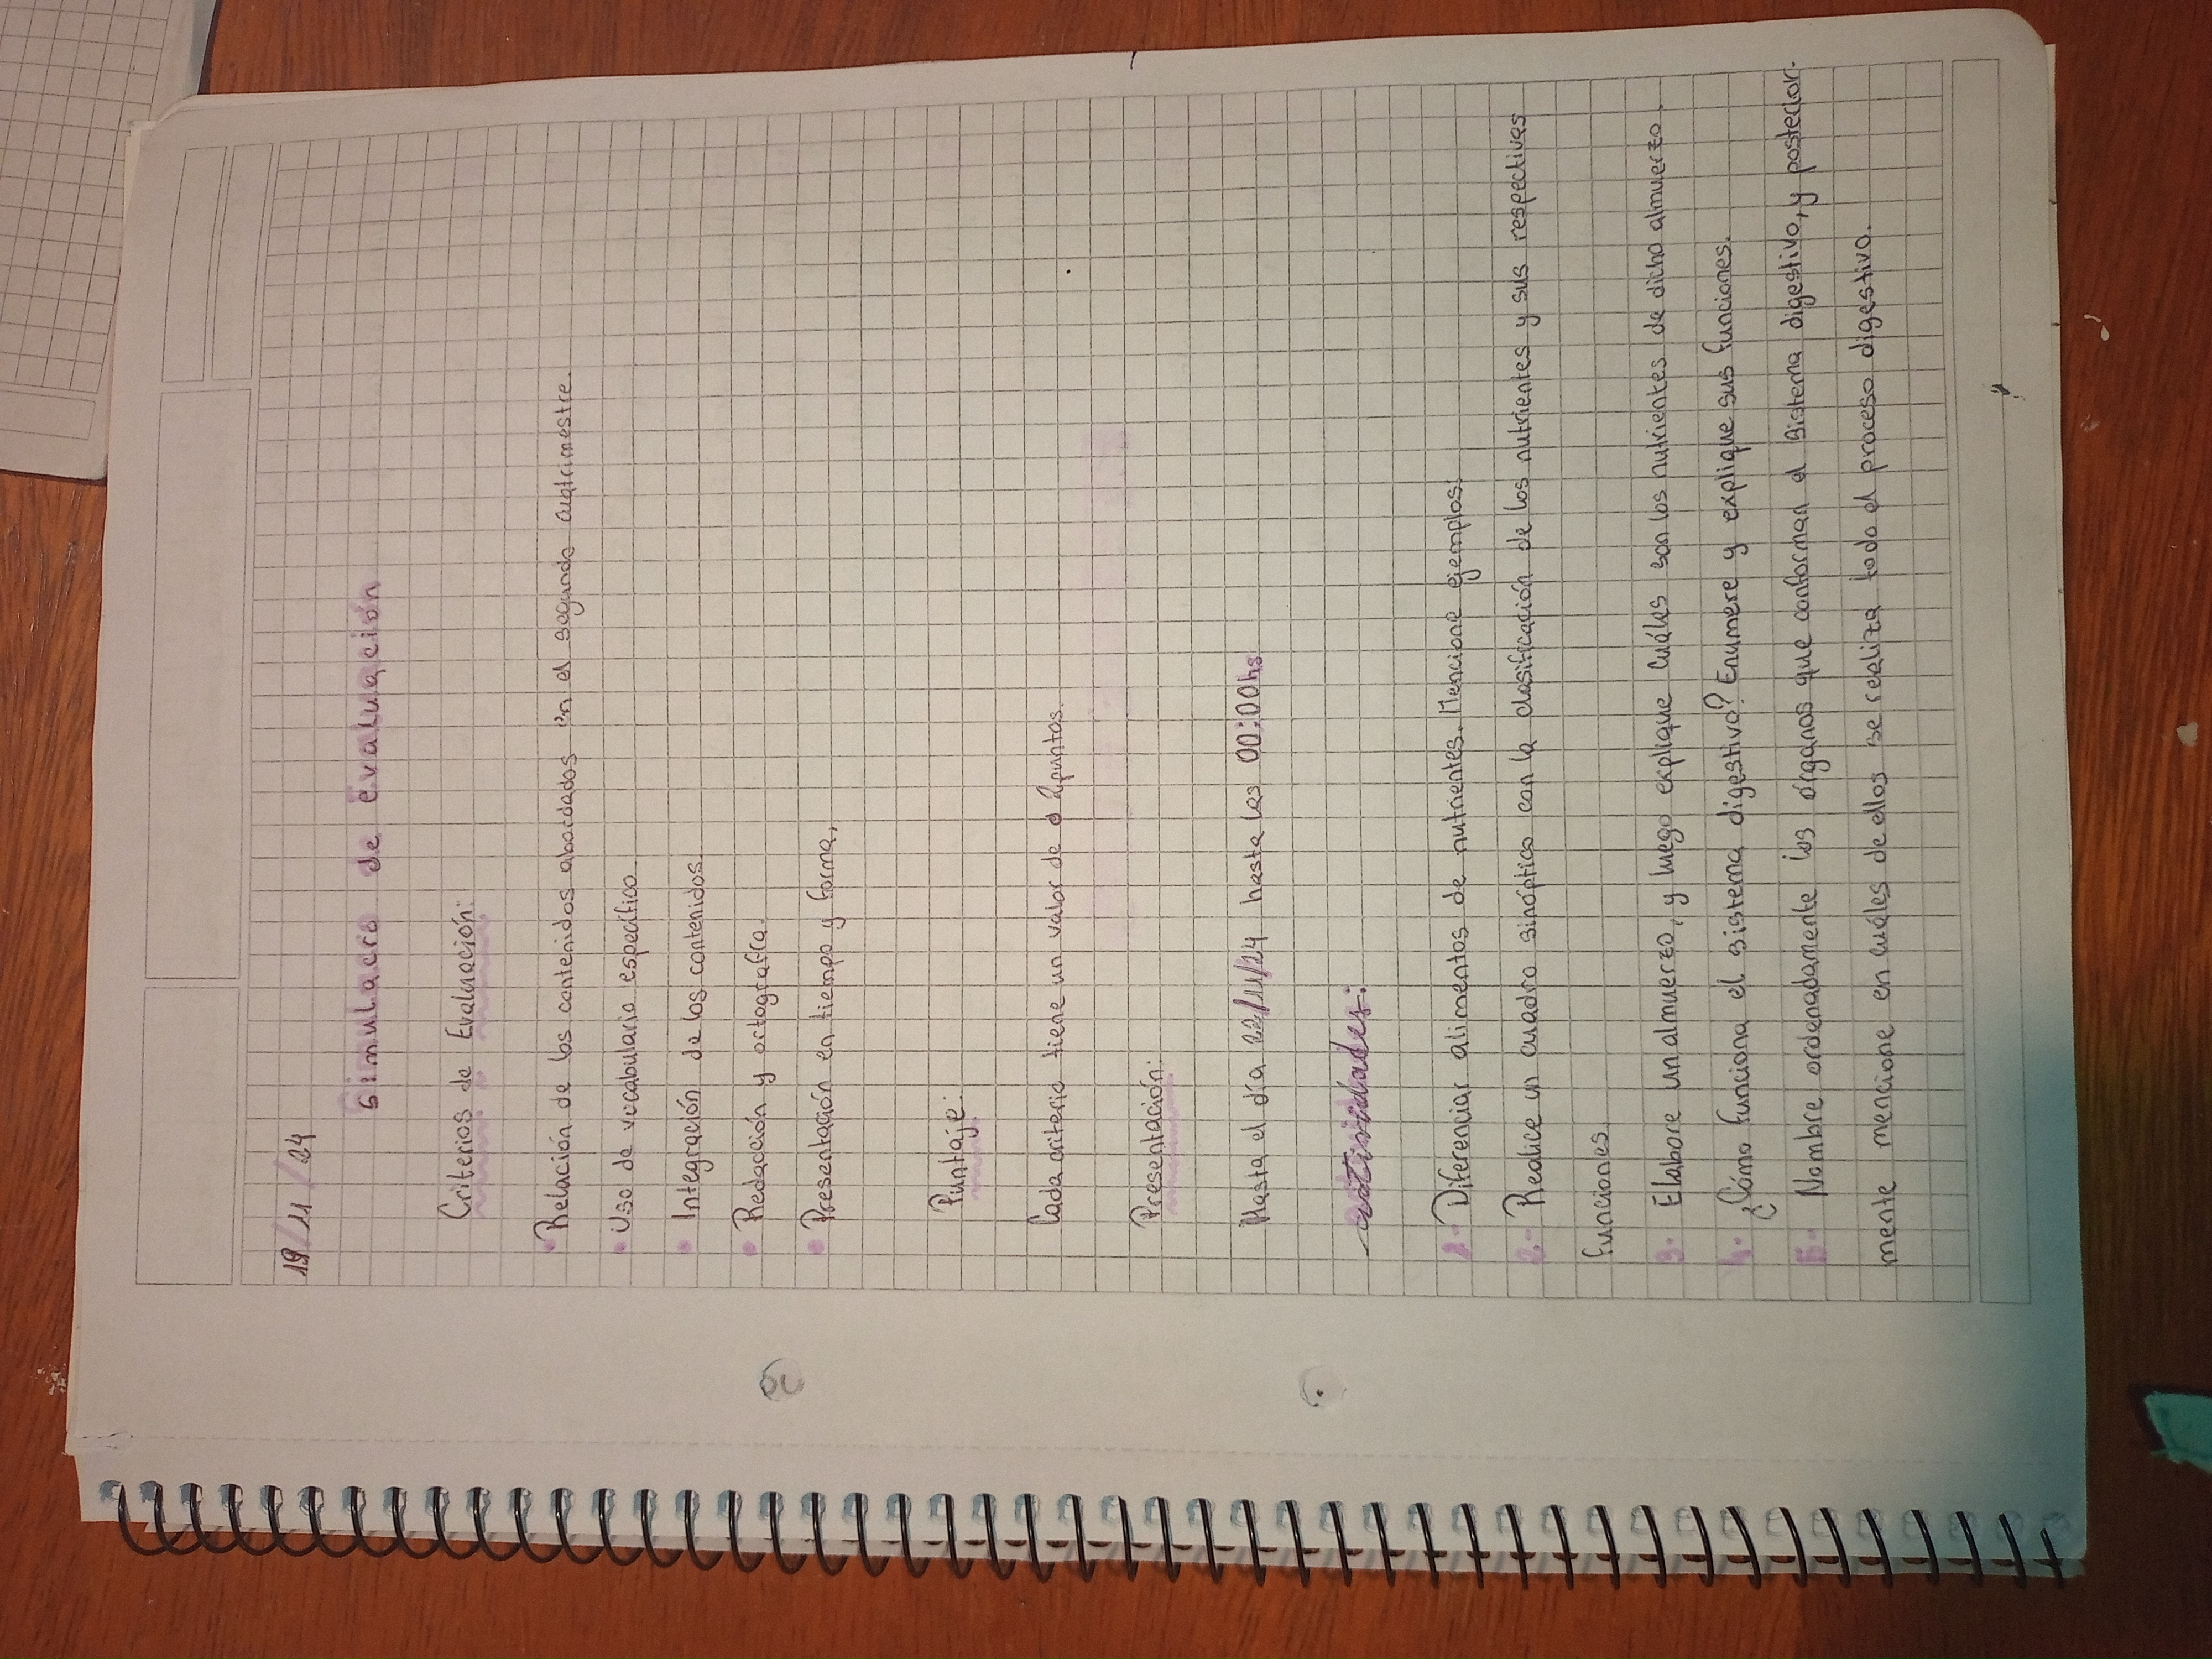 19/11/24
Simulacro de Evaluación
Criterios de Evaluación:
• Relación de los contenidos abordados en el segundo cuatrimestre.
• Uso de vocabulario específico.
• Integración de los contenidos.
• Redacción y ortografía.
• Presentación en tiempo y forma.
Puntaje:
Cada criterio tiene un valor de 2 puntos.
Presentación:
Hasta el día 22/11/24 hasta las 00:00hs
Actividades:
1- Diferenciar alimentos de nutrientes. Mencione ejemplos.
2- Realice un cuadro sinóptico con la clasificación de los nutrientes y sus respectivas
funciones.
3- Elabore un almuerzo, y luego explique cuáles son los nutrientes de dicho almuerzo.
4- ¿Cómo funciona el sistema digestivo? Enumere y explique sus funciones.
5- Nombre ordenadamente los órganos que conforman el sistema digestivo, y posterior-
mente mencione en cuáles de ellos se realiza todo el proceso digestivo.